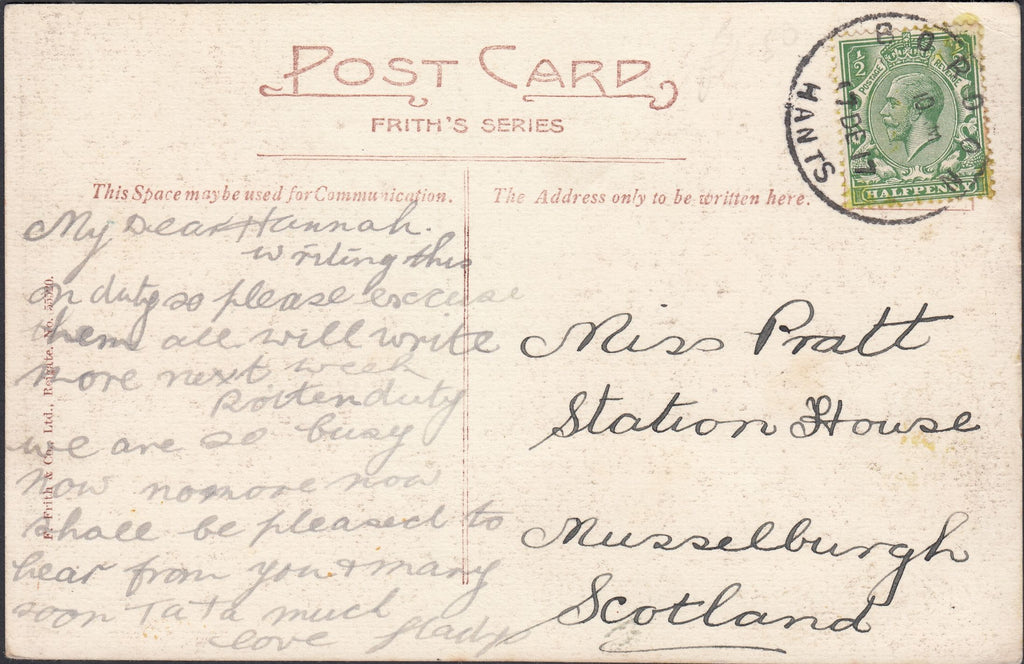 POST CARD
FRITH'S SERIES
This Space may be used for Communication.
The Address only to be written here.
BORDON
HANTS
10
17 DE 17
½
POSTAGE
HALFPENNY
My Dear Hannah.
writing this
on duty so please excuse
them all will write
more next week
Rotten duty
we are so busy
now nomore now
shall be pleased to
hear from you & many
soon Ta Ta much
love Gladys
Miss Pratt
Station House
Musselburgh
Scotland
F. Frith & Co., Ltd., Reigate. No.